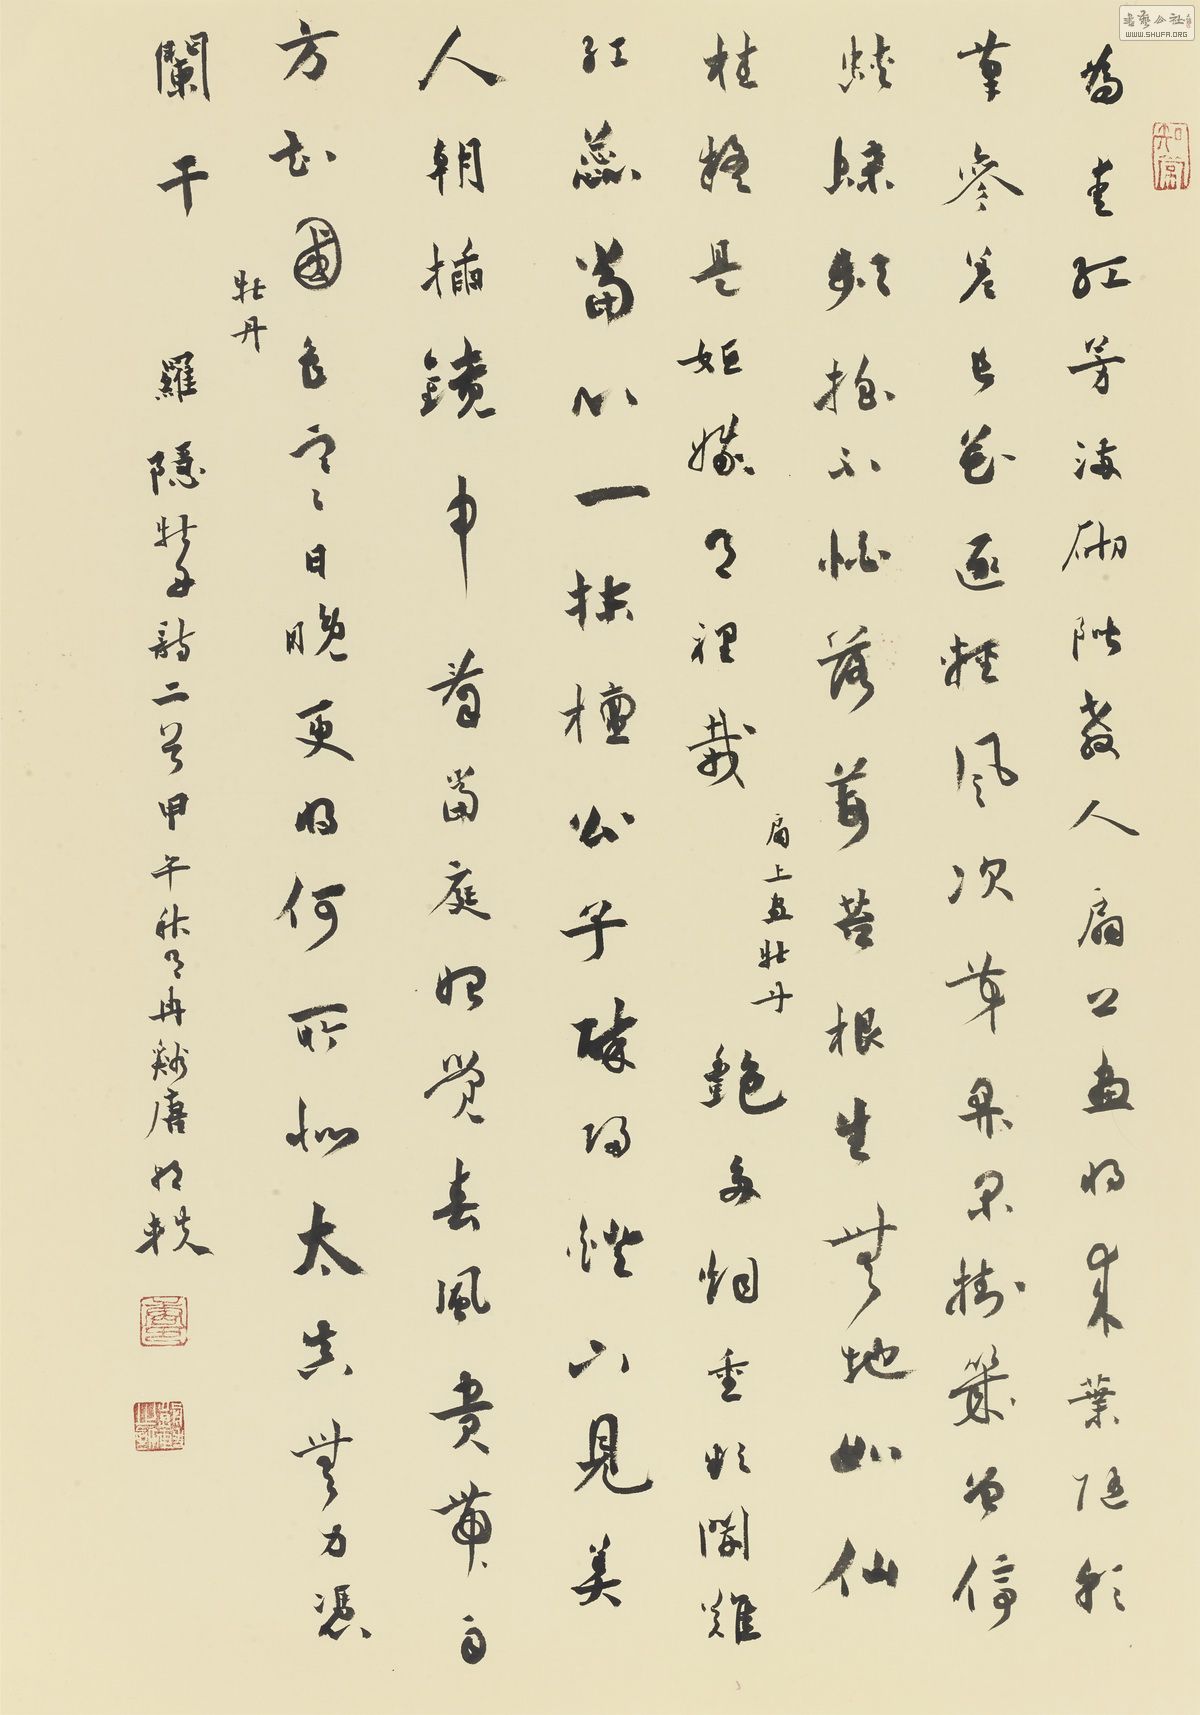 知常
為愛紅芳滿砌階教人扇上畫將來葉隨彩
筆參差長花逐輕風次第開閒掛幾曾停
蛺蝶頻搖不怕落莓苔根生無地如仙
桂疑是姮娥月裡栽 扇上畫牡丹 艷多煙重欲開難
紅蕊當心一抹檀公子醉歸燈下見美
人朝插鏡中看當庭始覺春風貴帶雨
方知國色寒日晚更將何所似太真無力憑
闌干 牡丹
羅隱牡丹詩二首甲午秋月冉谿唐朝軼
書藝公社
WWW.SHUFA.ORG